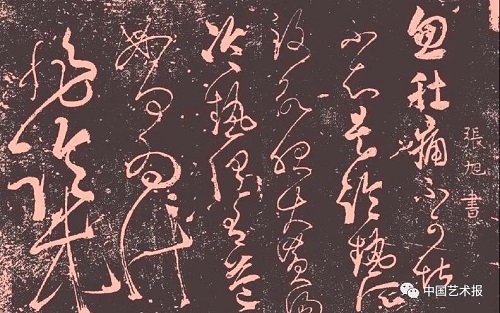 張旭書
忽肚痛不可堪
不知是冷熱所
致欲服大黃湯
冷熱俱有益
如何為計
非臨床
中国艺术报